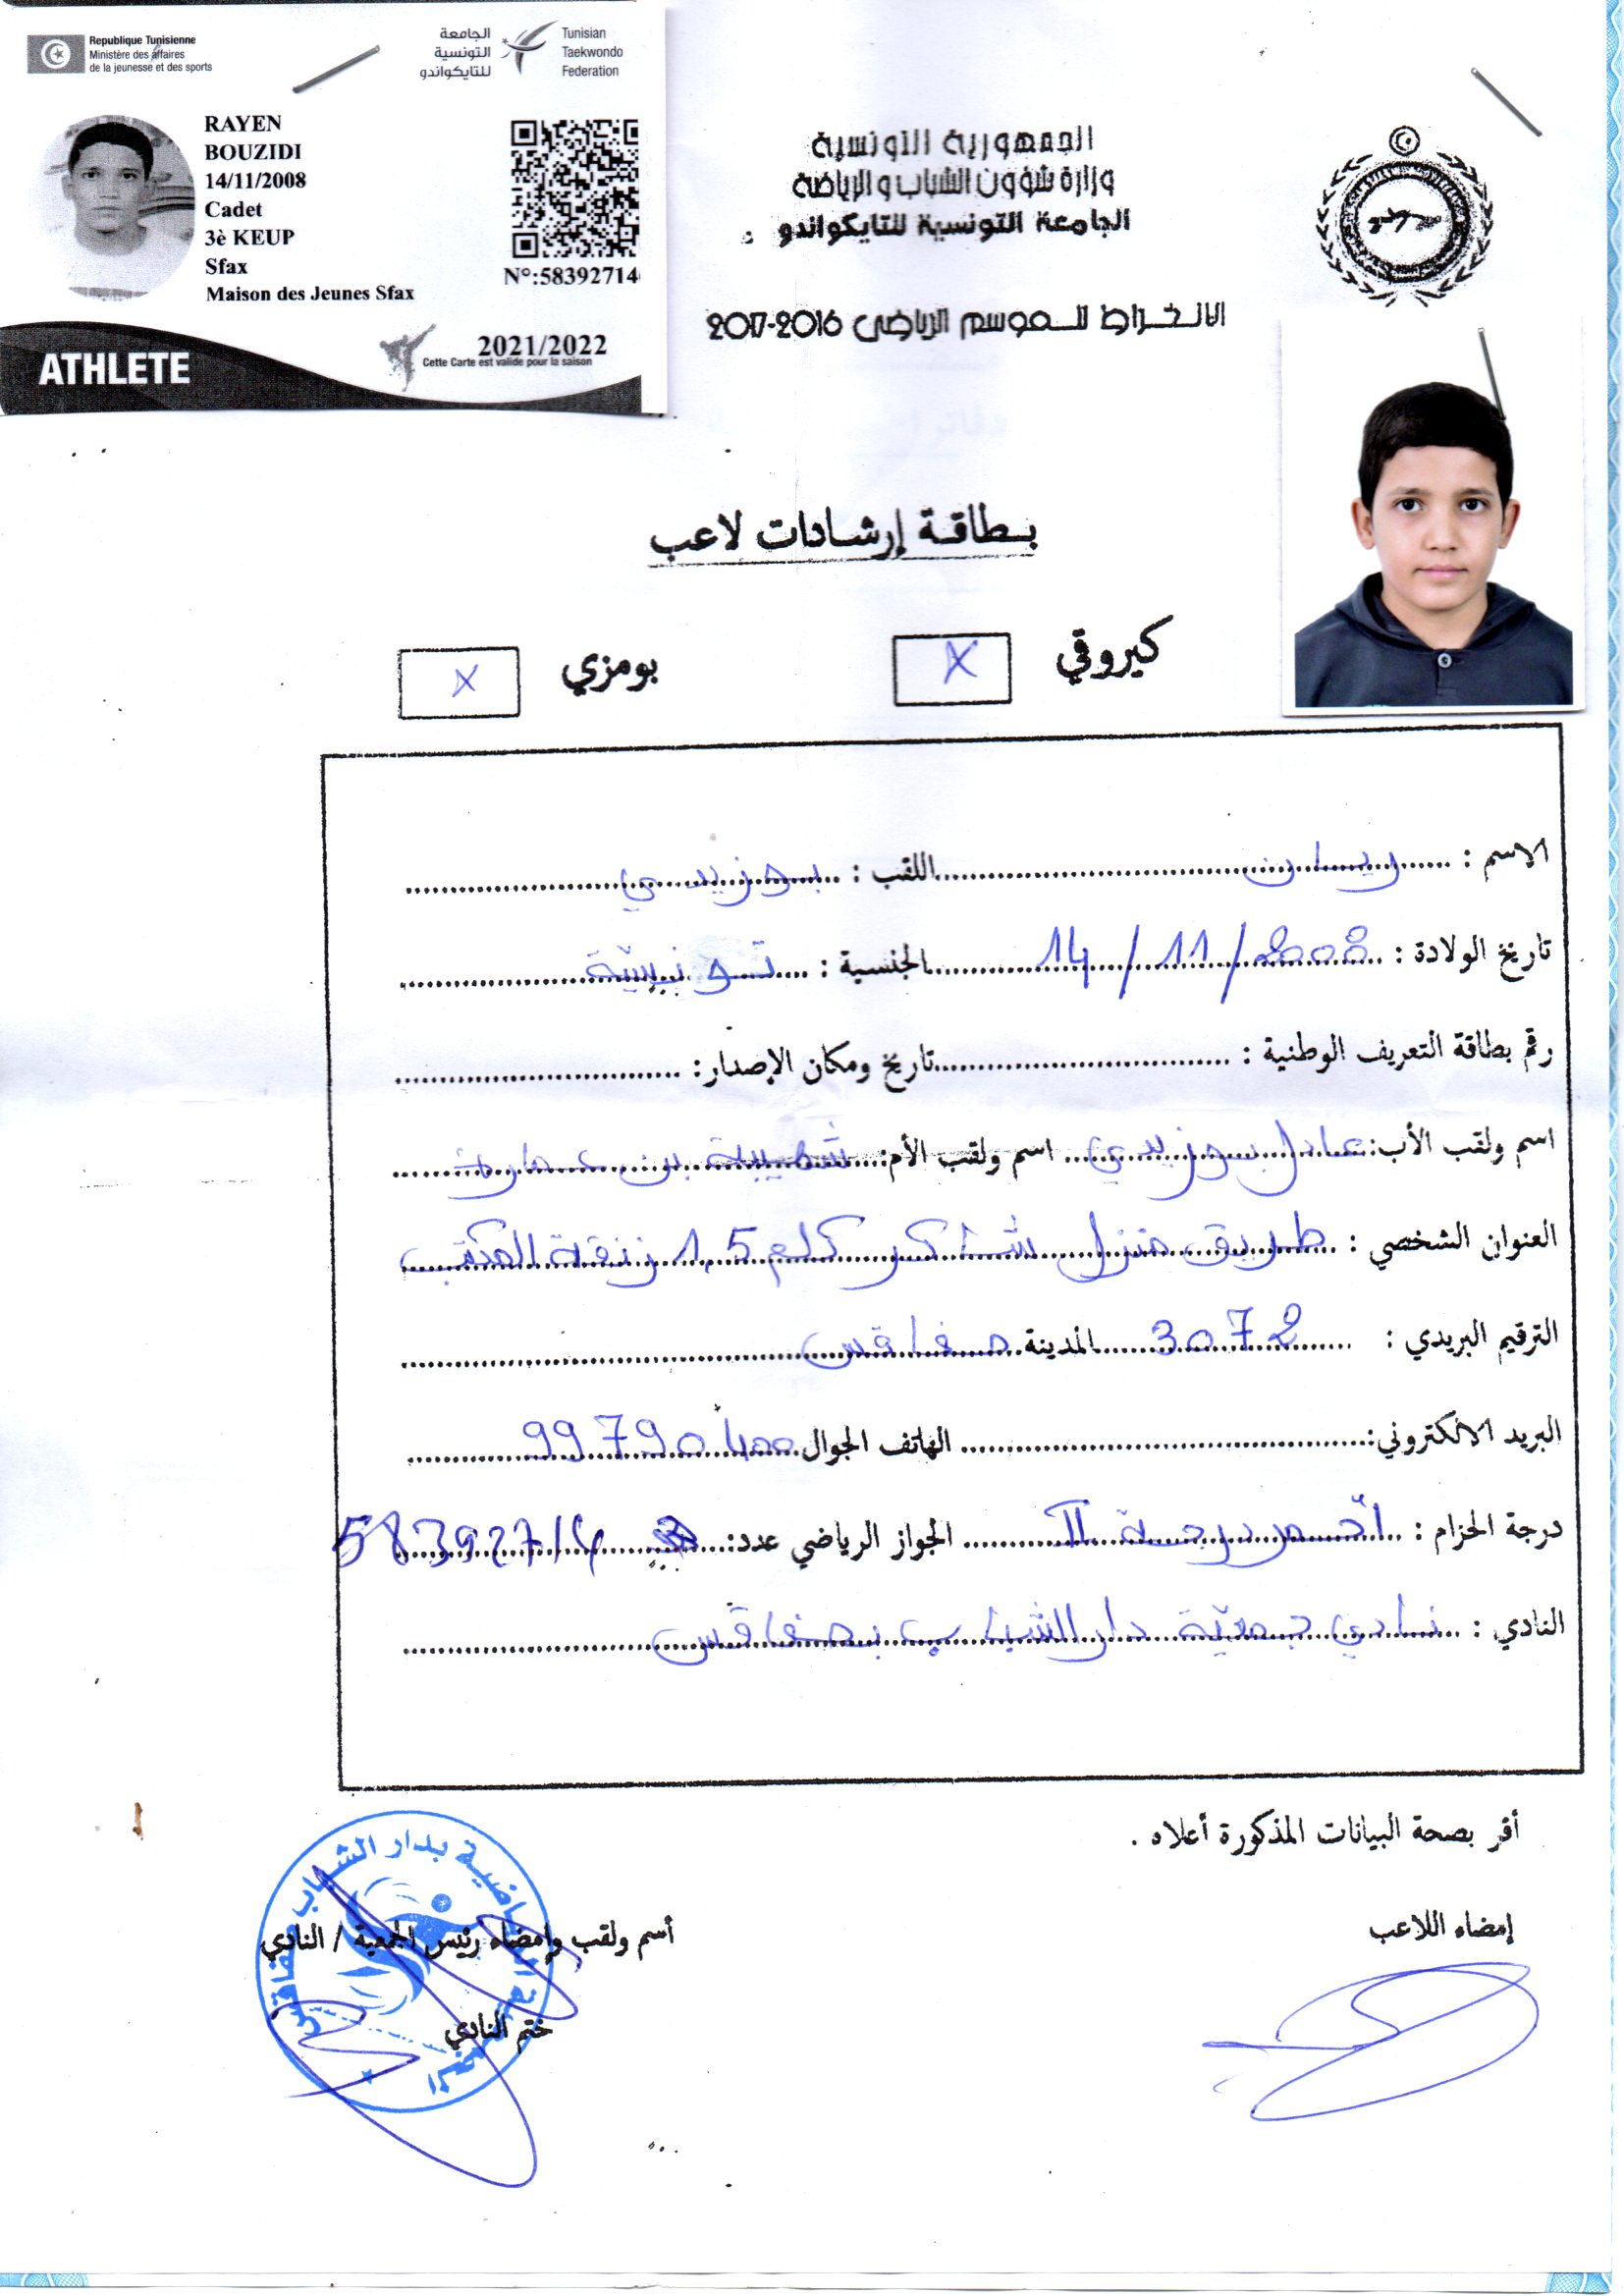 Republique Tunisienne
Ministère des affaires
de la jeunesse et des sports
الجامعة
التونسية
للتايكواندو
Tunisian
Taekwondo
Federation
RAYEN
BOUZIDI
14/11/2008
Cadet
3è KEUP
Sfax
Maison des Jeunes Sfax
N°:58392714
ATHLETE
2021/2022
Cette Carte est valide pour la saison
الجمهورية التونسية
وزارة شؤون الشباب والرياضة
الجامعة التونسية للتايكواندو
الانخراط للموسم الرياضي 2016-2017
بطاقة إرشادات لاعب
كيروقي X بومزي X
الاسم : ريان اللقب : بوزيدي
تاريخ الولادة : 14/11/2008 الجنسية : تونسيّة
رقم بطاقة التعريف الوطنية : تاريخ ومكان الإصدار:
اسم ولقب الأب: عادل بوزيدي اسم ولقب الأم: بن عمارة
العنوان الشخصي : طريق منزل شاكر كلم 1,5 زنقة المكتب
الترقيم البريدي : 3072 المدينة صفاقس
البريد الالكتروني: الهاتف الجوال 99790400
درجة الحزام : أحمر درجة II الجواز الرياضي عدد: 58392714
النادي : نادي جمعيّة دار الشباب بصفاقس
أقر بصحة البيانات المذكورة أعلاه .
إمضاء اللاعب
أسم ولقب وإمضاء رئيس الجمعية / النادي
ختم النادي
الجمعية الرياضية بدار الشباب صفاقس